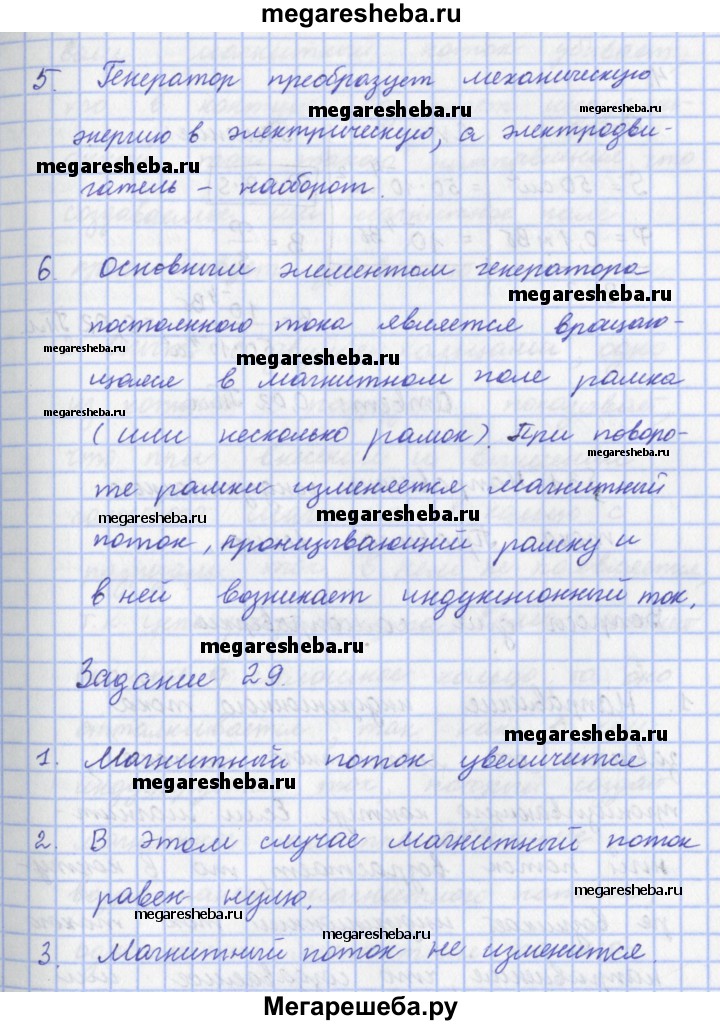 megaresheba.ru
5. Генератор преобразует механическую
megaresheba.ru
megaresheba.ru
энергию в электрическую, а электродви-
megaresheba.ru
гатель – наоборот.
6. Основным элементом генератора
megaresheba.ru
постоянного тока является вращаю-
megaresheba.ru
megaresheba.ru
щаяся в магнитном поле рамка
megaresheba.ru
(или несколько рамок). При поворо-
megaresheba.ru
те рамки изменяется магнитный
megaresheba.ru
megaresheba.ru
поток, пронизывающий рамку и
в ней возникает индукционный ток.
megaresheba.ru
Задание 29.
megaresheba.ru
1. Магнитный поток увеличится
megaresheba.ru
2. В этом случае магнитный поток
megaresheba.ru
равен нулю.
megaresheba.ru
megaresheba.ru
3. Магнитный поток не изменится.
Мегарешеба.ру